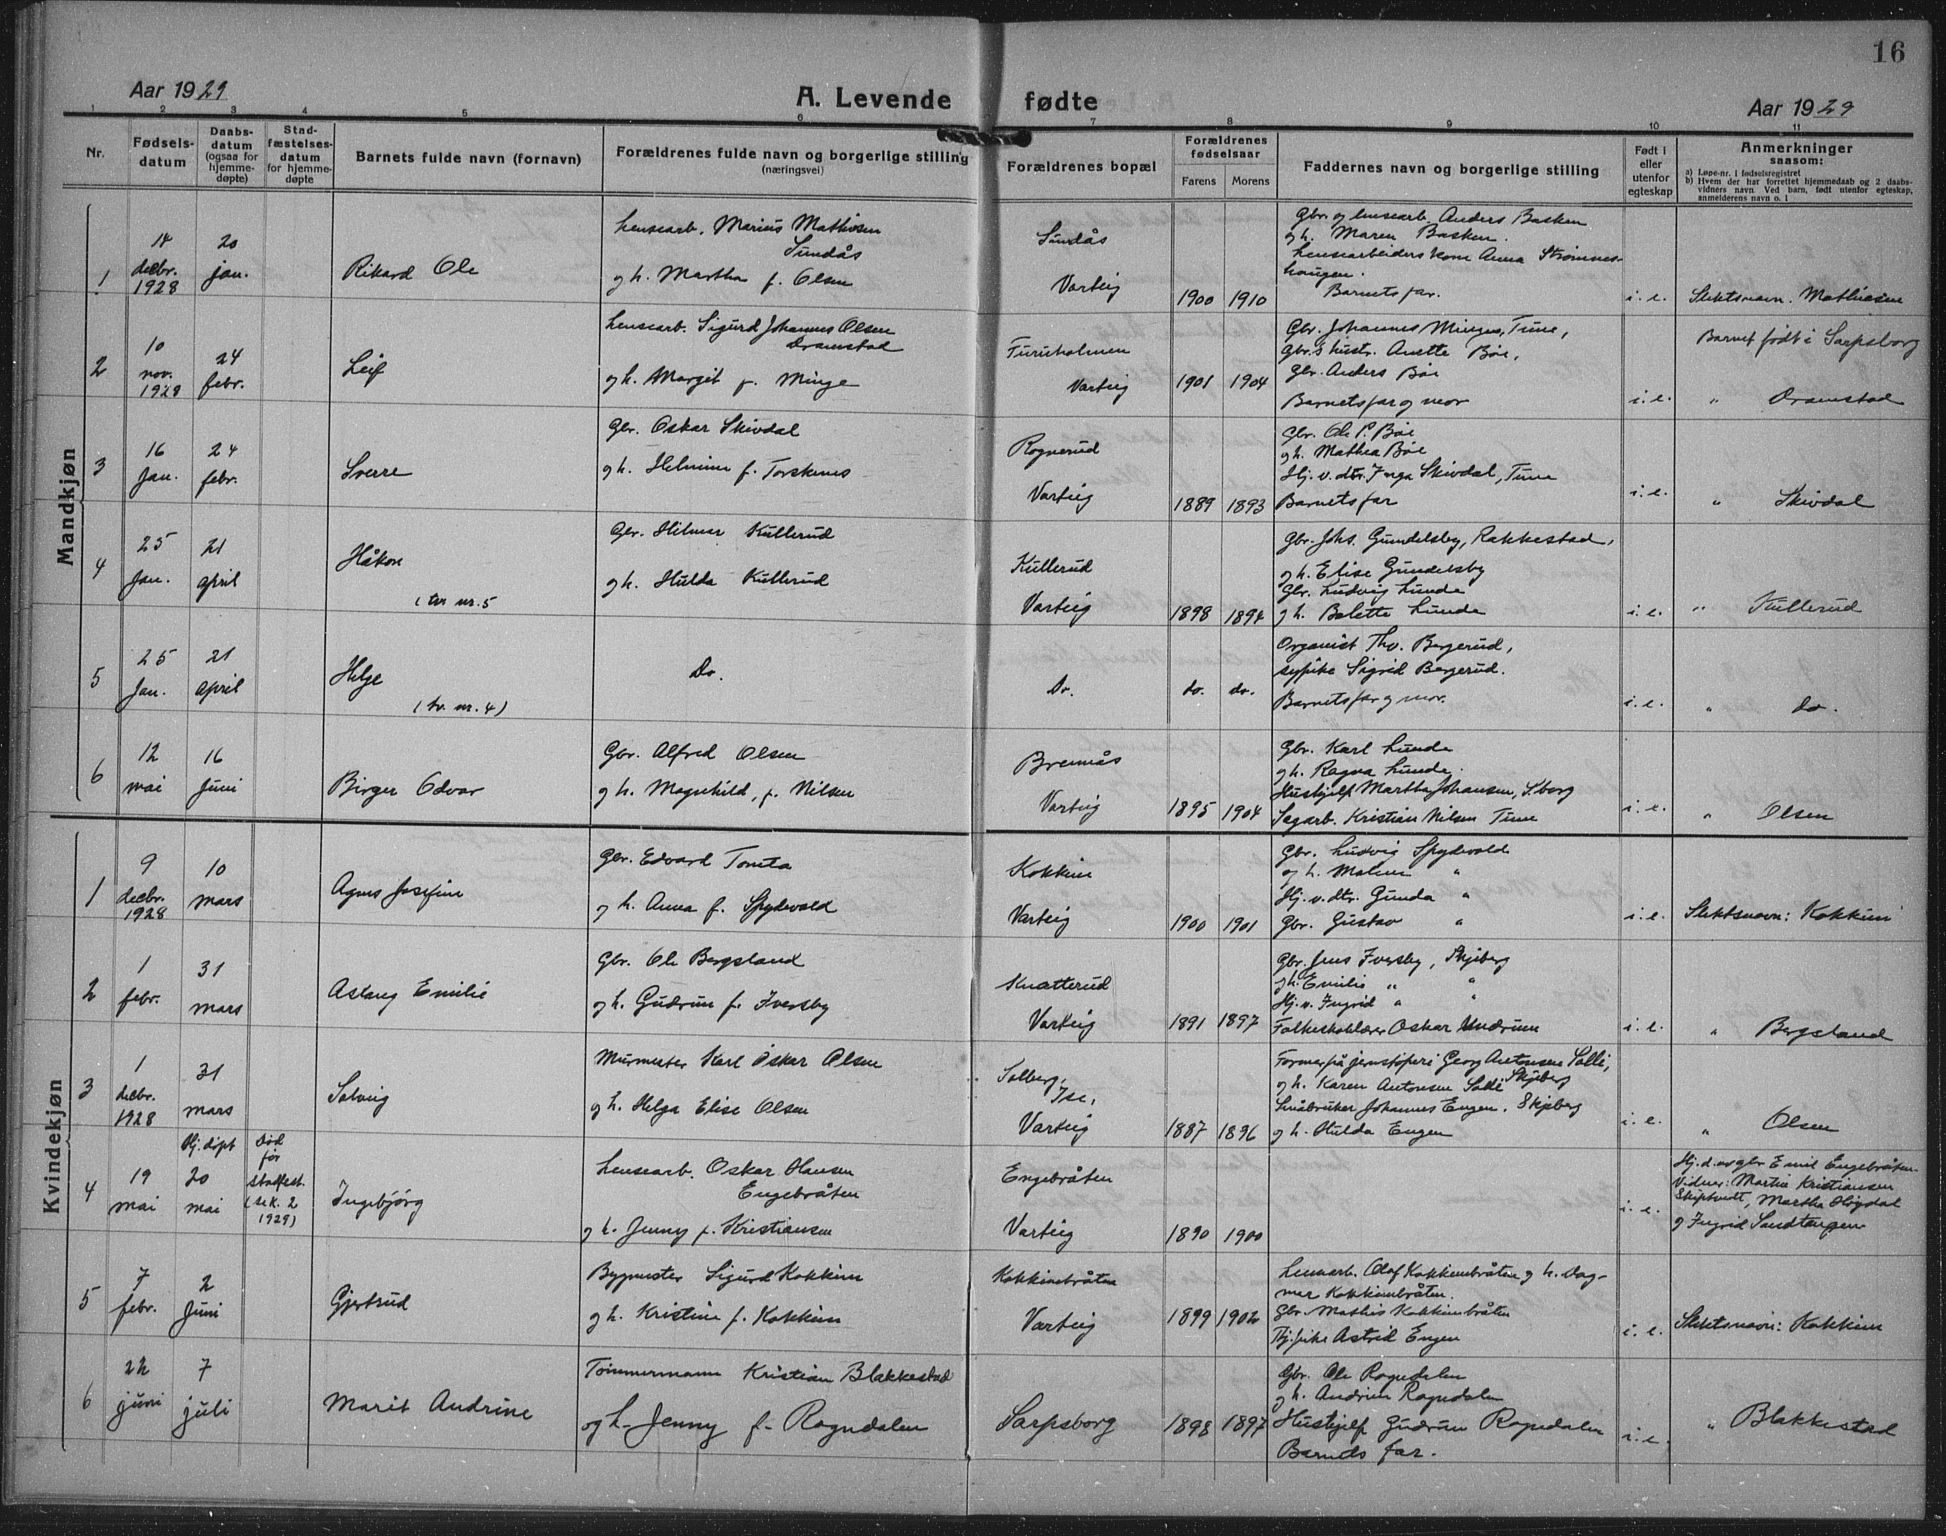 16
Aar 1929
A. Levende fødte
Aar 1929
1 2 3 4 5 6 7 8 9 10 11
Nr.
Fødsels-
datum
Daabs-
datum
(ogsaa for
hjemme-
døpte)
Stad-
fæstelses-
datum
for hjemme-
døpte
Barnets fulde navn (fornavn)
Forældrenes fulde navn og borgerlige stilling
(næringsvei)
Forældrenes bopæl
Forældrenes
fødselsaar
Farens Morens
Faddernes navn og borgerlige stilling
Født i
eller
utenfor
egteskap
Anmerkninger
saasom:
a) Løpe-nr. i fødselsregistret
b) Hvem der har forrettet hjemmedaab og 2 daabs-
vidners navn. Ved barn, født utenfor egteskap,
anmelderens navn o. l
Mandkjøn
1
14
decbr.
1928
20
jan.
Rikard Ole
Lensearb. Marius Mathisen
Sundås
og h. Martha f. Olsen
Sundås
Varteig
1900 1910
Gbr. og lensearb. Anders Basken
og h. Maren Basken.
Lensearbeiderskone Anna Strømnes-
haugen.
Barnets far.
i. e.
Slektsnavn. Mathisen
2
10
nov.
1928
24
febr.
Leif
Lensearb. Sigurd Johannes Olsen
Dramstad
og h. Margit f. Minge
Furuholmen
Varteig
1901 1904
Gbr. Johannes Minge, Tune,
Gbr.s hustr. Anette Bøe,
Gbr. Anders Bøe
Barnets far og mor
i. e.
Barnet født i Sarpsborg
" Dramstad
3
16
Jan.
24
febr.
Sverre
Gbr. Oskar Skivdal
og h. Helmine f. Torskenes
Rognerud
Varteig
1889 1893
Gbr. Ole P. Bøe
og h. Mathea Bøe
Hj. v. dtr. Inga Skivdal, Tune
Barnets far
i. e.
" Skivdal
4
25
Jan.
21
april
Håkon
(tv. nr. 5
Gbr. Hilmar Kullerud
og h. Hulda Kullerud
Kullerud
Varteig
1898 1894
Gbr. Johs. Gundelsby, Rakkestad,
og h. Elise Gundelsby
Gbr. Ludvig Lunde
og h. Belette Lunde
i. e.
" Kullerud
5
25
Jan.
21
april
Helge
(tv. nr. 4)
Do.
Do.
do. do.
Organist Thv. Bergerud,
sypike Sigrid Bergerud.
Barnets far og mor.
i. e.
" do.
6
12
mai
16
Juni
Birger Odvar
Gbr. Alfred Olsen
og h. Magnhild, f. Nilsen
Bremnås
Varteig
1895 1904
Gbr. Karl Lunde
og h. Ragna Lunde.
Hushjelp Martha Johansen, S.borg
Sagarb. Kristian Nilsen Tune
i. e.
" Olsen
Kvindekjøn
1
9
decbr.
1928
10
mars
Agnes Josefine
Gbr. Edvard Tomta
og h. Anna f. Spydevold
Kokkim
Varteig
1900 1901
Gbr. Ludvig Spydevold
og h. Maline "
Hj. v. dtr. Gunda "
Gbr. Gustav "
i. e.
Slektsnavn: Kokkim
2
1
febr.
31
mars
Aslaug Emilie
Gbr. Ole Bergsland
og h. Gudrun f. Iversby
Knatterud
Varteig
1891 1897
Gbr. Jens Iversby, Skjeberg
og h. Emilie " "
Hj. v. Ingrid " "
Folkeskolelærer Oskar Undrum
i. e.
" Bergsland
3
1
decbr.
1928
31
mars
Solveig
Murmester Karl Oskar Olsen
og h. Helga Elise Olsen
Solberg,
Ise,
Varteig
1887 1896
Former på jernstøperi Georg Antonsen Solli,
og h. Karen Antonsen Solli Skjeberg
Småbruker Johannes Engen, Skjeberg
og h. Hulda Engen
i. e.
" Olsen
4
19
mai
Hj. døpt
20
mai
død
før
stadfest.
(se K. 2
1929)
Ingebjørg
Lensearb. Oskar Hansen
Engebråten
og h. Jenny f. Kristiansen
Engebråten
Varteig
1890 1900
i. e.
Hj. d. av gbr Emil Engebråten.
Vidner: Martin Kristiansen
Martha Høgdal
og Ingrid Sandtangen
5
7
febr.
2
Juni
Gjertrud
Bygmester Sigurd Kokkim
og h. Kristine f. Kokkim
Kokkimbråten
Varteig
1899 1902
Lensearb. Olaf Kokkimbråten og h. Dag-
mar Kokkimbråten.
Gbr. Mathis Kokkimbråten
Tj.pike Astrid Engen
i. e.
Slektsnavn: Kokkim
6
22
juni
7
juli
Marit Andrine
Tømmermann Kristian Blakkestad
og h. Jenny f. Rogndalen
Sarpsborg
1898 1897
Gbr. Ole Rogndalen
og h. Andrine Rogndalen
Hushjelp Gudrun Rogndalen
Barnets far.
i. e.
" Blakkestad